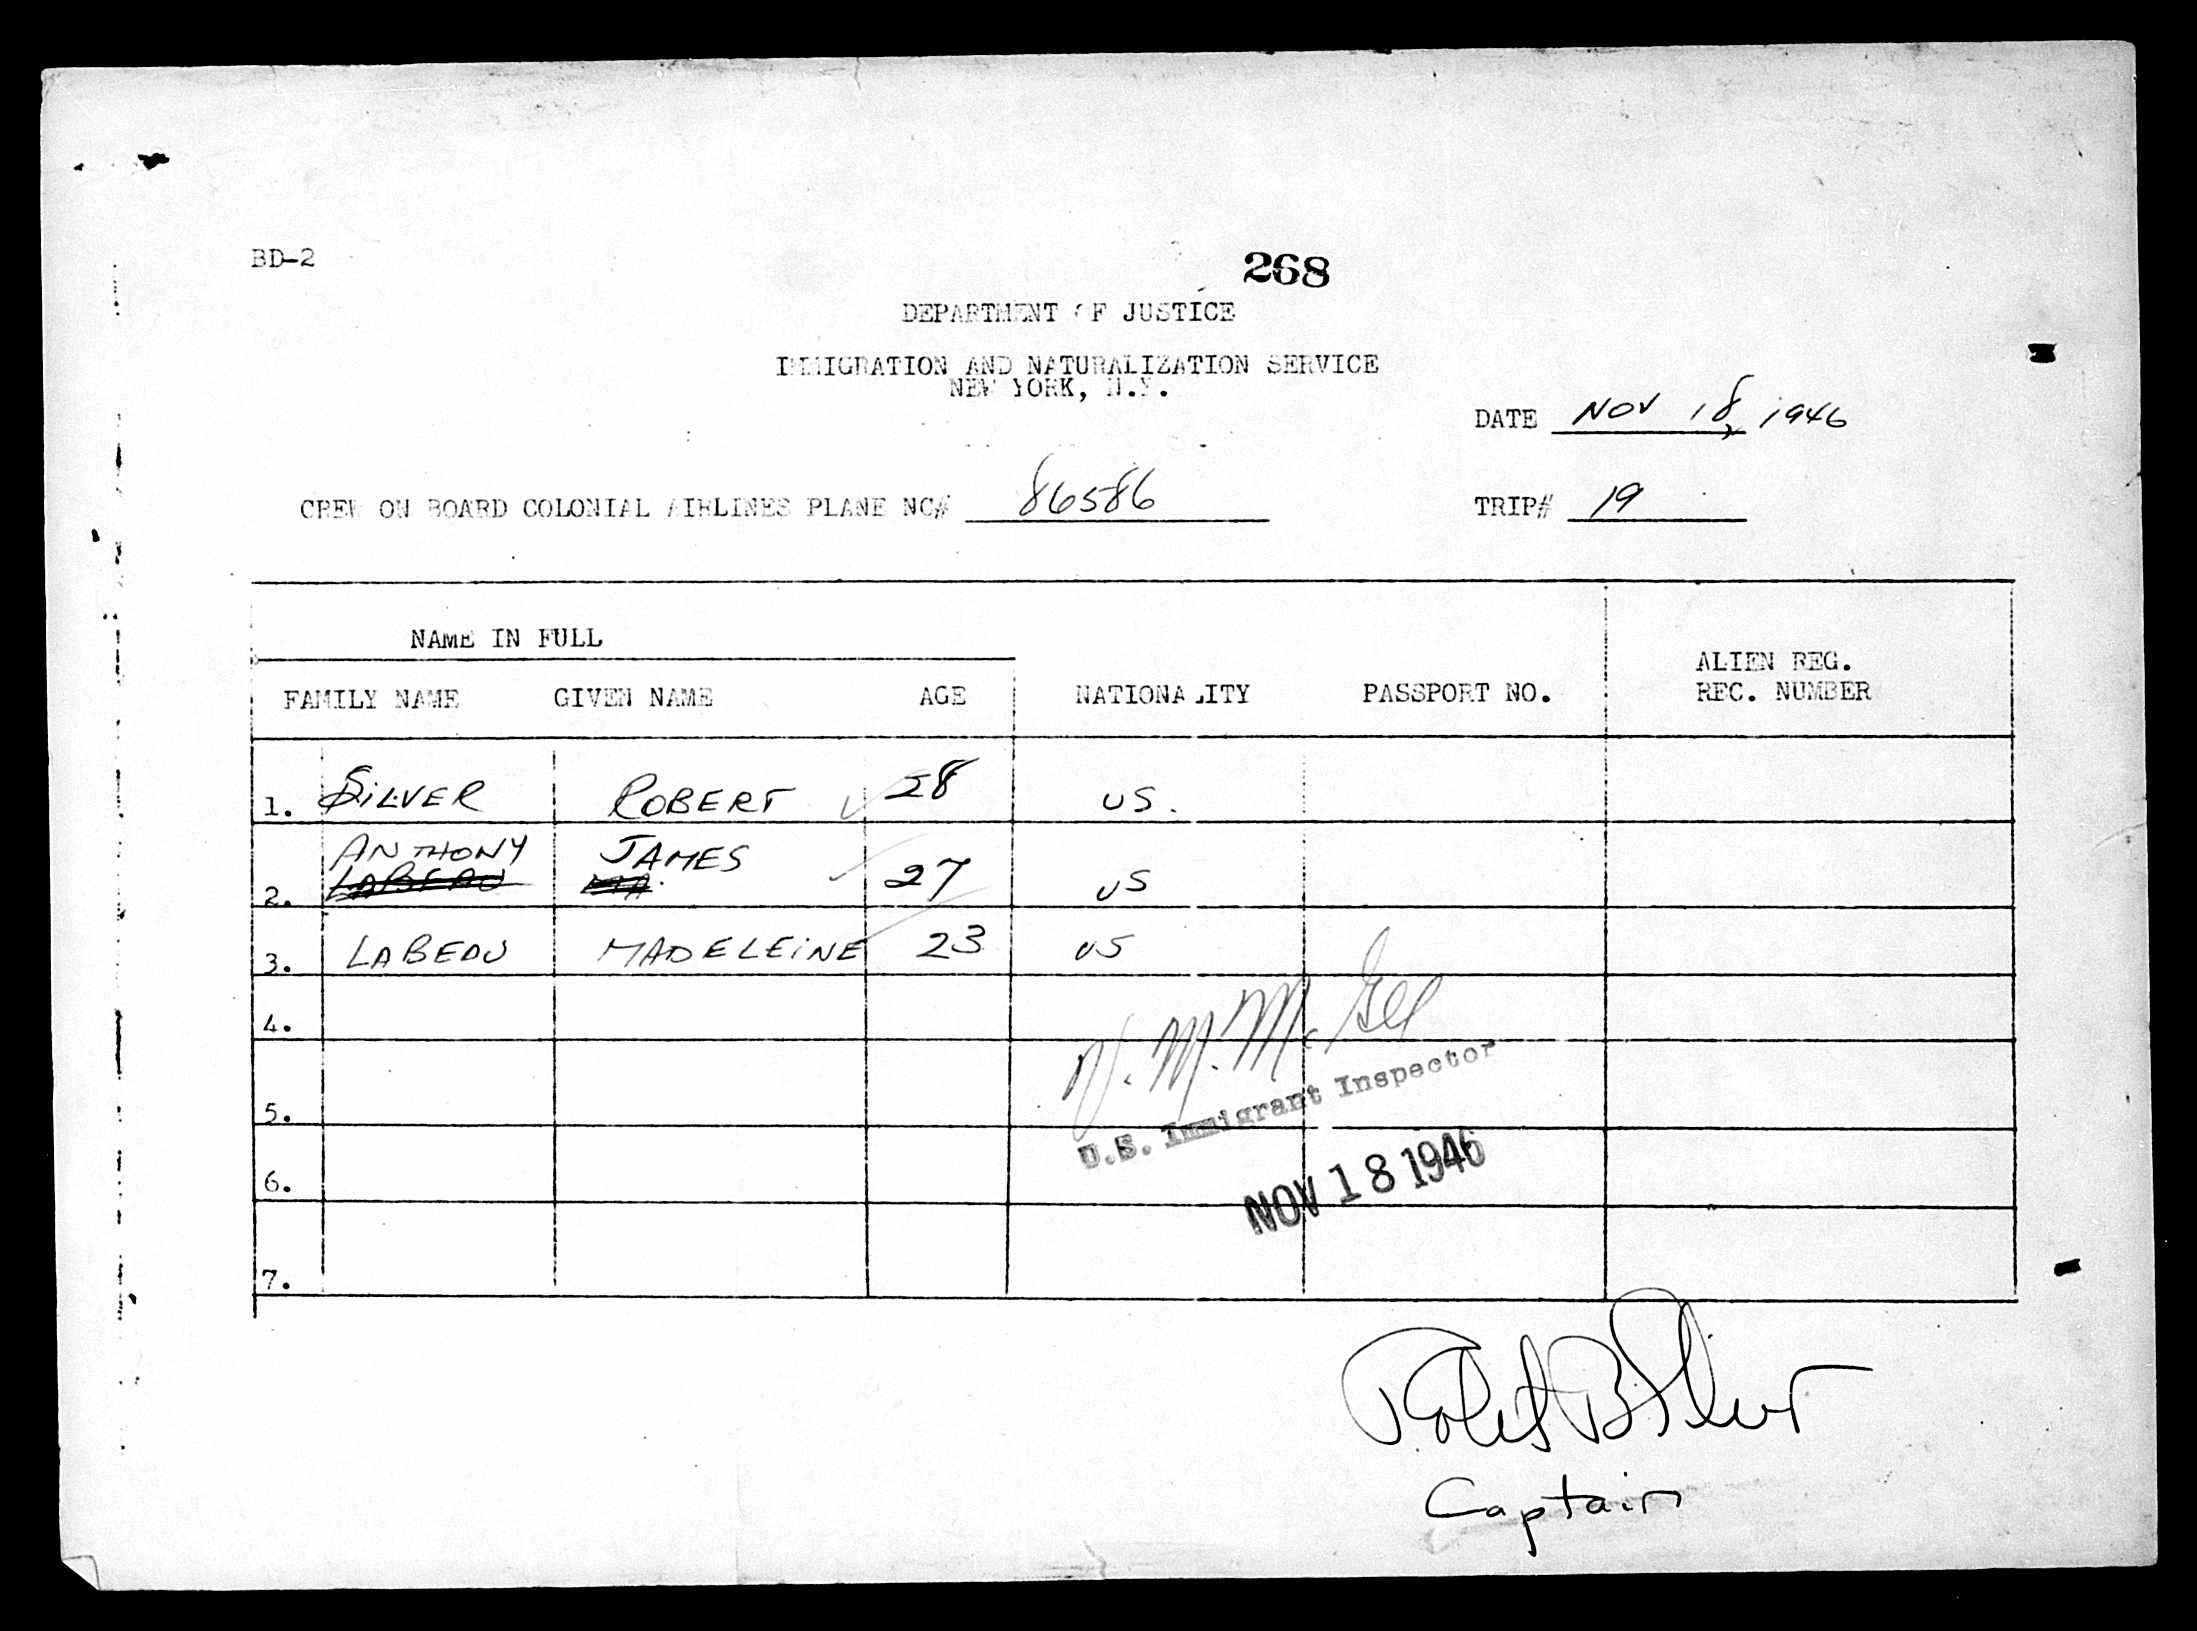 BD-2
268
DEPARTMENT OF JUSTICE
IMMIGRATION AND NATURALIZATION SERVICE
NEW YORK, N.Y.
DATE NOV 18, 1946
CREW ON BOARD COLONIAL AIRLINES PLANE NC# 86586 TRIP# 19
NAME IN FULL
FAMILY NAME GIVEN NAME AGE NATIONALITY PASSPORT NO. ALIEN REG. REC. NUMBER
1. SILVER ROBERT 28 US.
ANTHONY JAMES
2. LABEAU MA. 27 US
3. LABEAU MADELEINE 23 US
4.
5.
6.
7.
V. M. McGee
U.S. Immigrant Inspector
NOV 18 1946
Robert B Silver
Captain